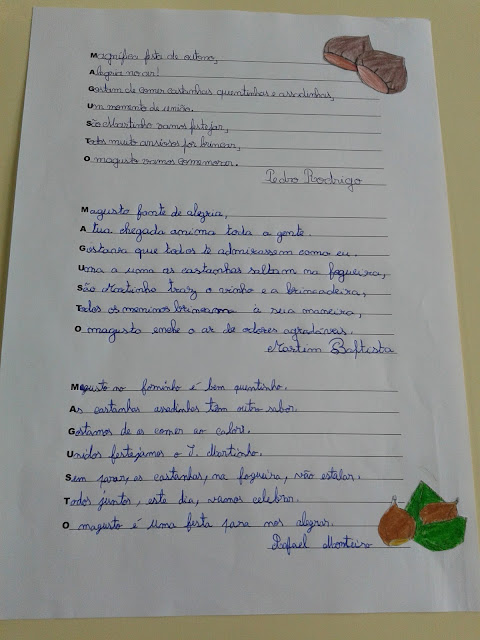 Magnífica festa de outono,
Alegria no ar!
Gostam de comer castanhas quentinhas e assadinhas,
Um momento de união.
São Martinho vamos festejar,
Todos muito ansiosos por brincar,
O magusto vamos comemorar.
Pedro Rodrigo
Magusto fonte de alegria,
A tua chegada anima toda a gente.
Gostava que todos te admirassem como eu.
Uma a uma as castanhas saltam na fogueira,
São Martinho traz o vinho e a brincadeira,
Todos os meninos brincam à sua maneira,
O magusto enche o ar de odores agradáveis.
Martim Baptista
Magusto no forninho é bem quentinho.
As castanhas assadinhas têm outro sabor.
Gostamos de as comer ao calor.
Unidos festejamos o S. Martinho.
Sem parar, as castanhas, na fogueira, vão estalar.
Todos juntos, este dia, vamos celebrar.
O magusto é uma festa para nos alegrar.
Rafael Monteiro